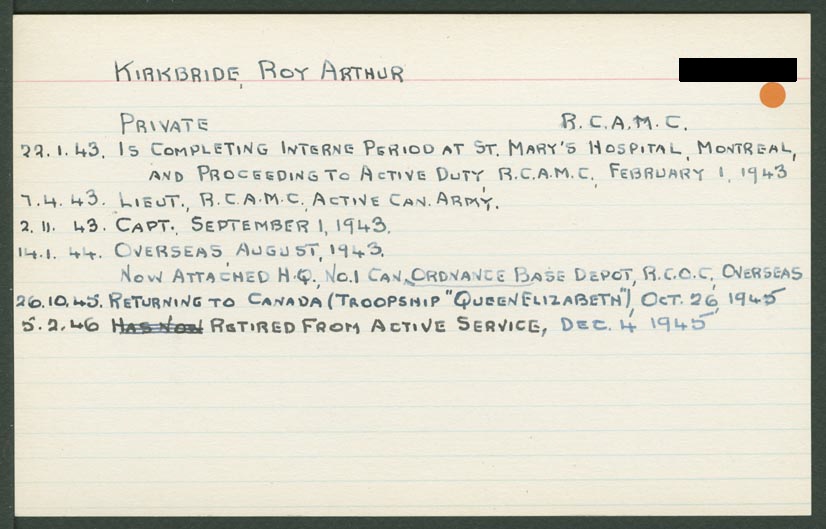 KIRKBRIDE, ROY ARTHUR
PRIVATE R.C.A.M.C.
22.1.43. IS COMPLETING INTERNE PERIOD AT ST. MARY'S HOSPITAL, MONTREAL,
AND PROCEEDING TO ACTIVE DUTY, R.C.A.M.C., FEBRUARY 1, 1943
7.4.43. LIEUT., R.C.A.M.C., ACTIVE CAN. ARMY.
2.11.43. CAPT., SEPTEMBER 1, 1943.
14.1.44. OVERSEAS, AUGUST, 1943.
NOW ATTACHED H.Q., NO.1 CAN. ORDNANCE BASE DEPOT, R.C.O.C., OVERSEAS
26.10.45. RETURNING TO CANADA (TROOPSHIP "QUEEN ELIZABETH"), OCT. 26, 1945
5.2.46 HAS NOW RETIRED FROM ACTIVE SERVICE, DEC. 4 1945